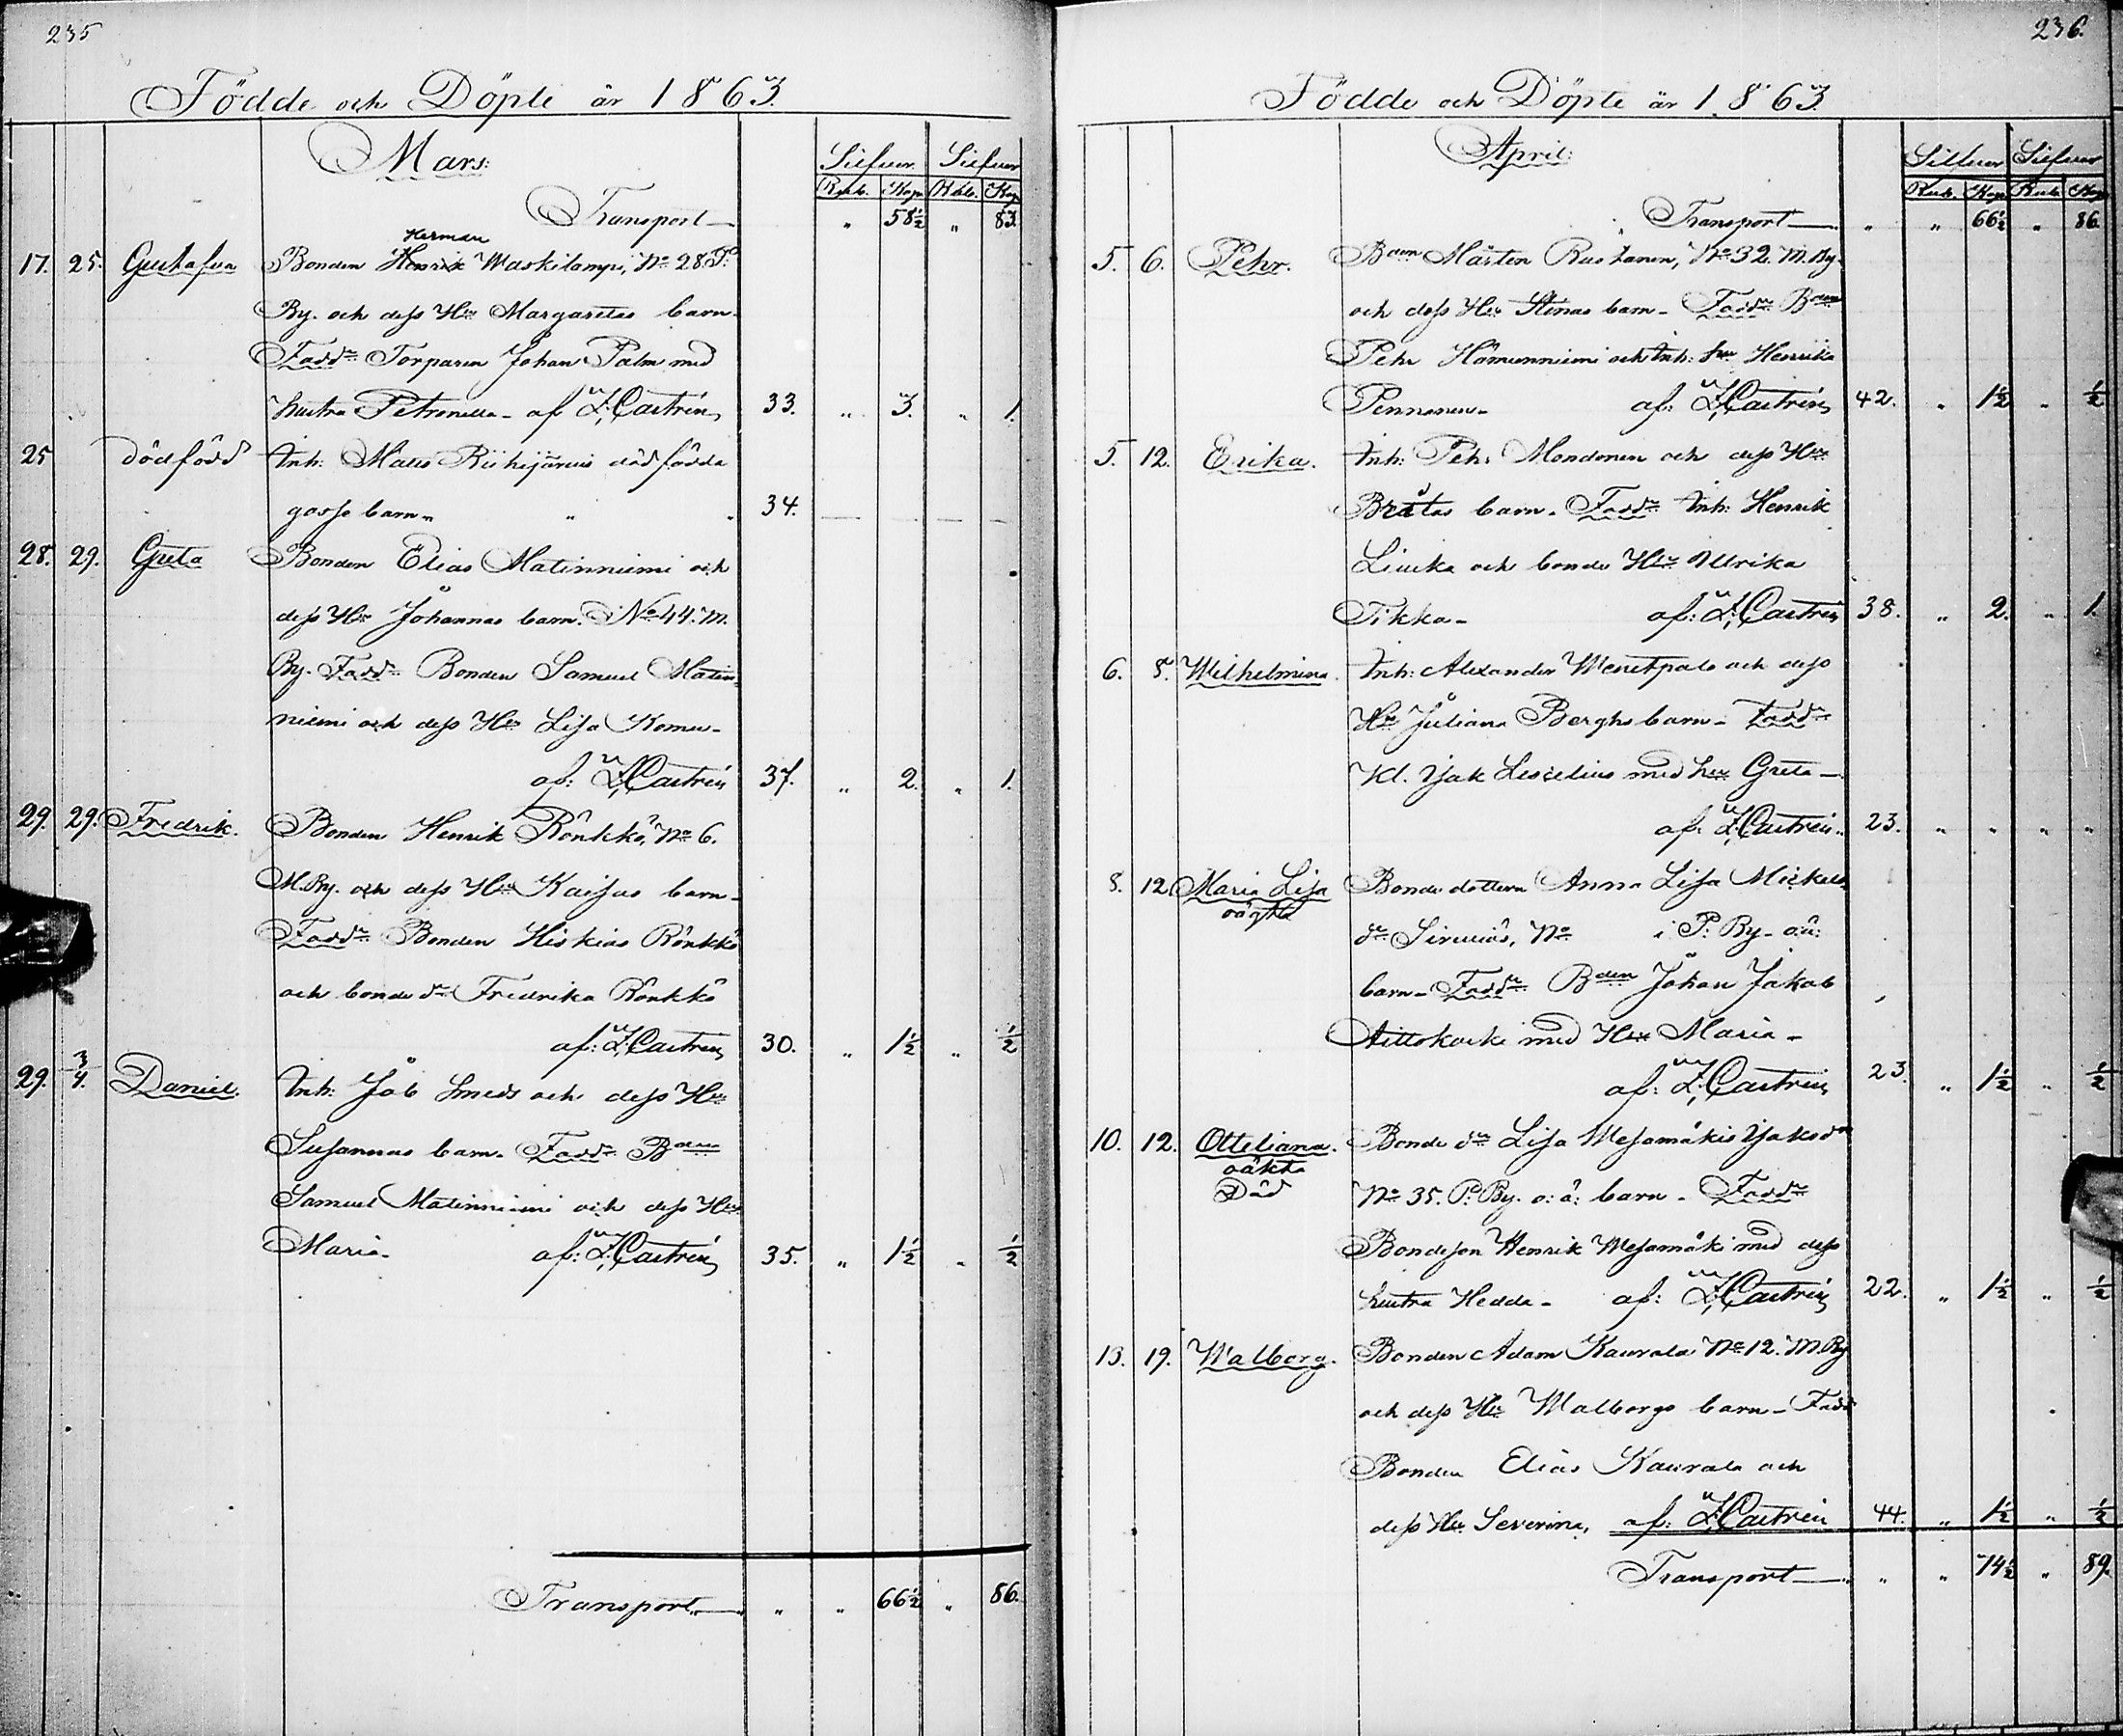 235
Födde och Döpte år 1863.
Mars:
Silfver. Silfver
Rub. Kop. Rub. Kop
Transport — „ 58½ „ 83.
Herman
17. 25. Gustafva Bonden Henrik Waskilampi, No 28. P.
By. och dess Hu Margaretas barn.
Fadd: Torparen Johan Palm med
hustru Petronella - af Z. Castrén 33. „ 3. „ 1.
25 dödfödd Inh: Mats Riihijärvis död födda
gosse barn. „ „ 34. — — — —
28. 29. Greta Bonden Elias Matinniemi och
dess Hu Johannas barn. No 44. M.
By. Fadd: Bonden Samuel Matin-
niemi och dess Hu Lisa Komu-
af: Z. Castrén 37. „ 2. „ 1.
29. 29. Fredrik. Bonden Henrik Rönkkö, No 6.
M. By. och dess Hu Kaisas barn-
Fadd: Bonden Hiskias Rönkkö
och bonde dr Fredrika Rönkkö
af: Z. Castrén 30. „ 1½ „ ½
29. 3/4. Daniel. Inh: Job Smeds och dess Hu
Susannas barn. Fadd: Bden
Samuel Matinniemi och dess Hu
Maria- af: Z. Castrén 35. „ 1½ „ ½
Transport — „ „ 66½ „ 86.
236.
Födde och Döpte år 1863.
April:
Silfver Silfver
Rub. Kop Rub. Kop
Transport — „ „ 66½ „ 86
5. 6. Pehr. Bden Mårten Rustanen, No 32. M. By.
och dess Hu Stinas barn - Fadd: Bden
Pehr Hämunniemi och Inh: hu Henrika
Pennanen- af: Z. Castrén 42. „ 1½ „ ½
5. 12. Erika. Inh: Pehr Mondonen och dess Hu
Britas barn. Fadd: Inh: Henrik
Liucka och bonde Hu Ulrika
Tikka- af: Z. Castrén 38. „ 2. „ 1.
6. 8. Wilhelmina. Inh: Alexander Wenetpalo och dess
Hu Juliana Berghs barn - Fadd:
Kl. Jak Lescelius med hu Greta-
af: Z. Castrén. 23. „ „ „ „
8. 12. Maria Lisa Bonde dottern Anna Lisa Mickels
oägta
dr Sirviös, No i P. By - oä:
barn - Fadd: Bden Johan Jakob
Aittokoski med Hu Maria-
af: Z. Castrén 23. „ 1½ „ ½
10. 12. Otteliana. Bonde dr Lisa Mesamäkis Jaks dr
oäkta
Död No 35. P. By. o: ä: barn - Fadd:
Bondeson Henrik Mesamäki med dess
hustru Hedda- af: Z. Castrén 22. „ 1½ „ ½
13. 19. Walborg. Bonden Adam Kaurala No 12. M. By
och dess Hu Walborgs barn - Fadd
Bonden Elias Kaurala och
dess Hu Severina, af: Z. Castrén 44. „ 1½ „ ½
Transport — „ „ 74½ „ 89.